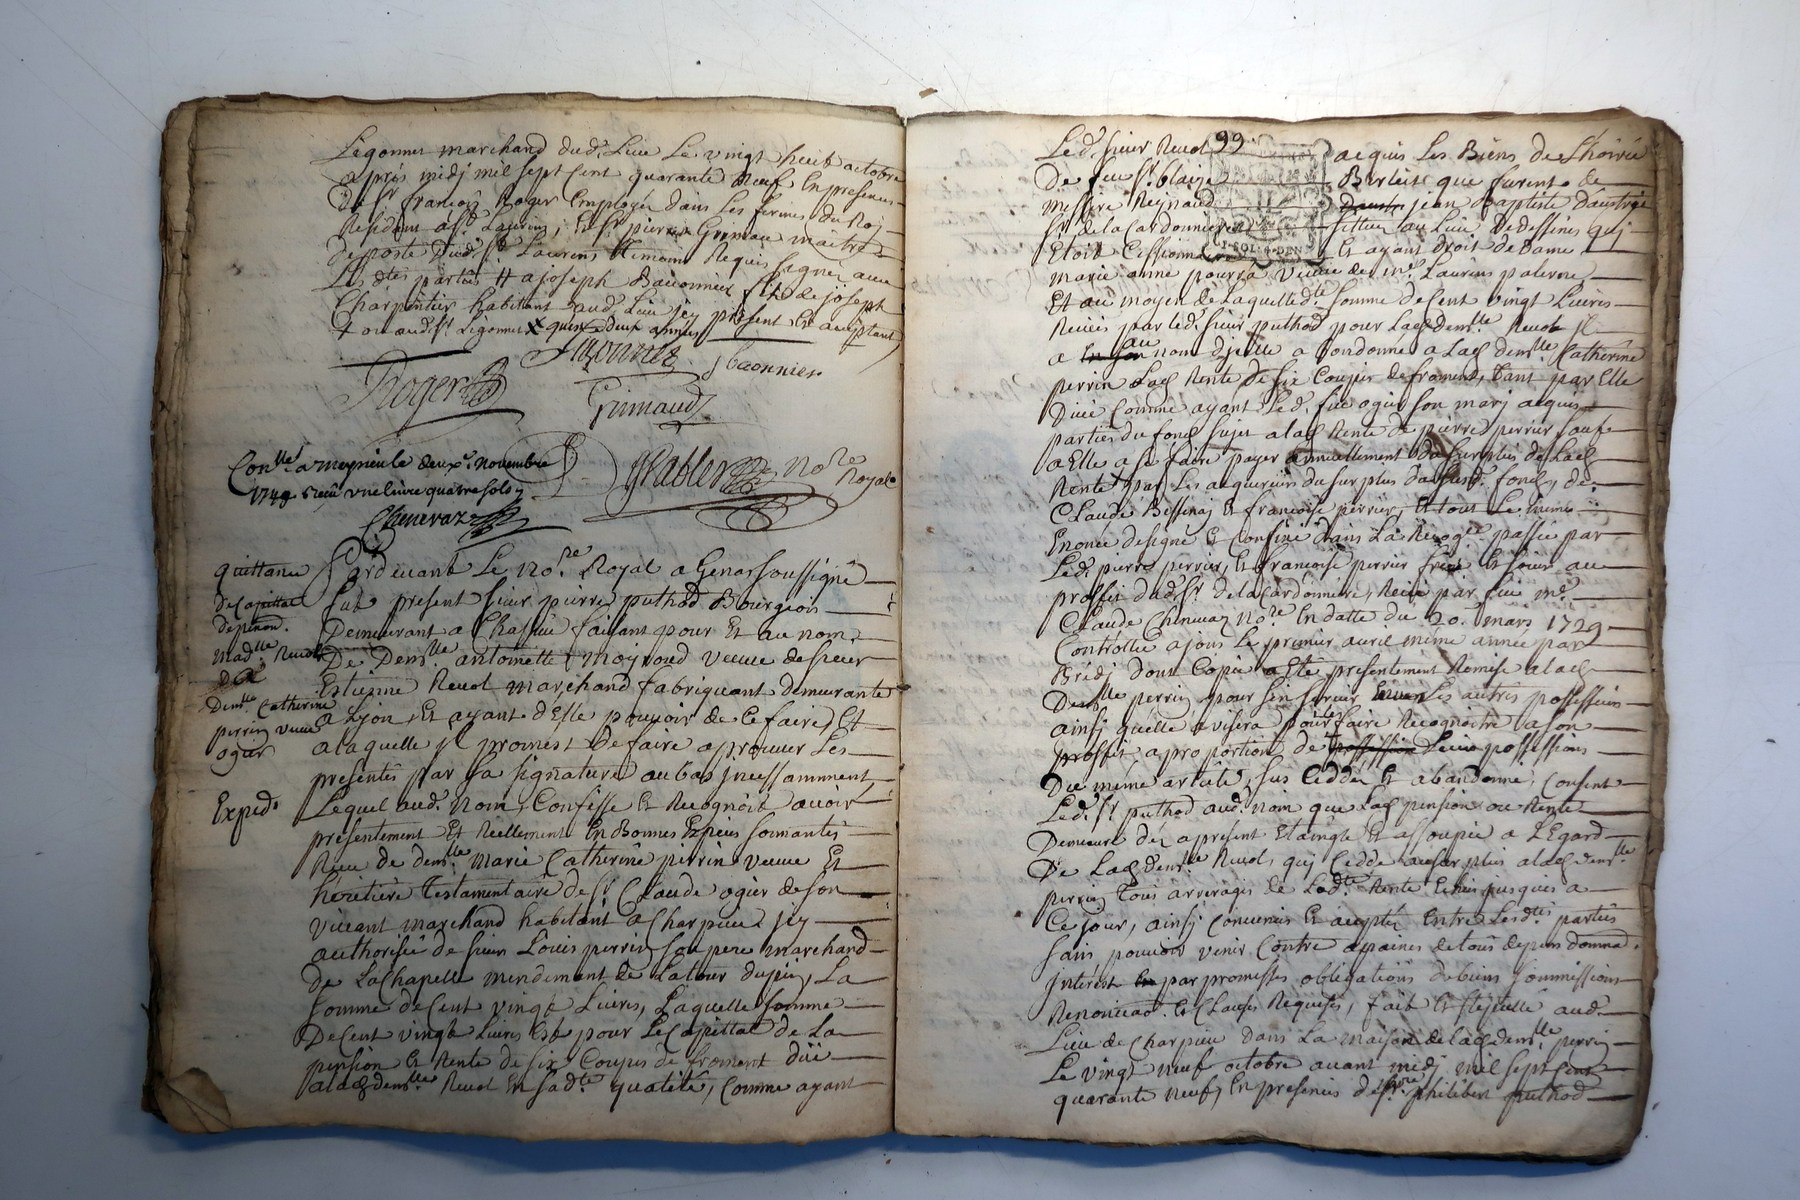 Legonnet marchand dud. Lieu Le vingt huit octobre
apres midj mil sept cent quarante Neuf En presences
De Sr. francois Roger Employé dans Les fermes du Roy
Residant a St. Laurens, Et Sr. pierre Grimau maitre
de poste Dud. St. Laurens temoins Requis signez avec
Les dtes parties # a joseph Baconnier fils de joseph
Charpentier habitant aud. Lieu jcy present Et acceptant
# ou aud. Sr. Legonnet X
Roger
jbaconnier
Grimaud
No.re Royal
Con.lle a meyrieu le deux.e novembre
1749 Receu une livre quatre sols
Chenevaz
quittance
de capittal
de pension
Mad.lle Revol
Dem.lle Catherine
perrin veuve
ogier
Exped.
Pardevant Le No.re Royal a Genas soussigné
fut present sieur pierre puthod Bourgeois
Demeurant a Chassieu faisant pour Et au nom
De Dem.lle antoinette Moyroud veuve de sieur
Estienne Revol marchand fabriquant demeurante
a Lyon, Et ayant d'Elle pouvoir de ce faire, Et
a laquelle jl promest de faire aprouver Les
presentes par sa signature au bas jncessamment,
Lequel aud. Nom, Confesse Et Recognoit avoir
presentement Et Reellement En Bonnes Especes sonantes
Receu de dem.lle Marie Catherine perrin veuve Et
heretiere Testamentaire de Sr. Claude ogier de son
vivant marchand habitant a Charpieu jcy
authorisée de sieur Louis perrin son pere marchand
de La Chapelle mendement de La tour du pin, La
somme de Cent vingt Livres, Laquelle somme
De Cent vingt Livres Est pour Le Capittal de La
pension Et Rente de six Coupes de froment düe
a lad. dem.lle Revol En sa d.te qualité, Comme ayant
99.
Led. sieur Revol acquis Les Biens de
De feu Sr. blaize que furent de
messire Reynaud jean Baptiste
Sr. de la Cardonniere scittue au Lieu de dessines quj
Etoit Cessionn Et ayant droit de Dame
SOLS DEN
Marie anne pourra veuve de m.e Laurens palerne
Et au moyen de Laquelle d.te somme de Cent vingt Livres
Receües par led. sieur puthod pour Lad. dem.lle Revol jl
a au nom dicelle abondonné a Lad. dem.lle Catherine
perrin Lad. Rente de six Coupes de froment, tant par Elle
Düe Comme ayant Led. feu ogier son mary acquis
parties du fond sujet a lad. Rente de pierre perrier sauf
a Elle a se faire payer annuellement du surplus de Lad.
Rente par Les acquereurs du surplus dud. fond, de
Claude Bessenaj Et francoise perrier, Et tout Le même
Enoncé designé Et Confiné dans La Recog.ce passée par
Led. pierre perrier, Et francoise perrier frere Et soeur au
proffit dud. Sr. de la Cardonniere, Recüe par feu m.e
Claude Chenevaz No.re En datte du 20. mars 1729
Controllée a jons Le premier avril même année par
Bredj dont Copie a Eté presentement Remise a lad.
Dem.lle perrin pour s'en servir Envers Les autres possesseurs
ainsj quelle avisera pour les faire Recognoitre a son
proffit, a proportion de Leurs possessions
Du meme article, sus Ceddé Et abandonné, Consent
Led. Sr. puthod aud. nom que Lad. pension ou Rente
Demeure dez a present Etainte Et assoupie a L'Egard
De Lad. dem.lle Revol, quj Cedde au surplus a lad. dem.lle
perrin Tous arrerages de Lad.te Rente Echus jusques a
Ce jour, ainsj Convenus Et accepté Entre Lesd.tes parties
sans pouvoir venir Contre a paines de tous depens dommag.
jnterest par promesses obligations de biens soummissions
Renonciaõ. Et Clauses Requises, fait Et stipullé aud.
Lieu de Charpieu Dans La maison de lad. dem.lle perrin
Le vingt neuf octobre avant midj mil sept Cent
quarante neuf, En presences de philibert puthod